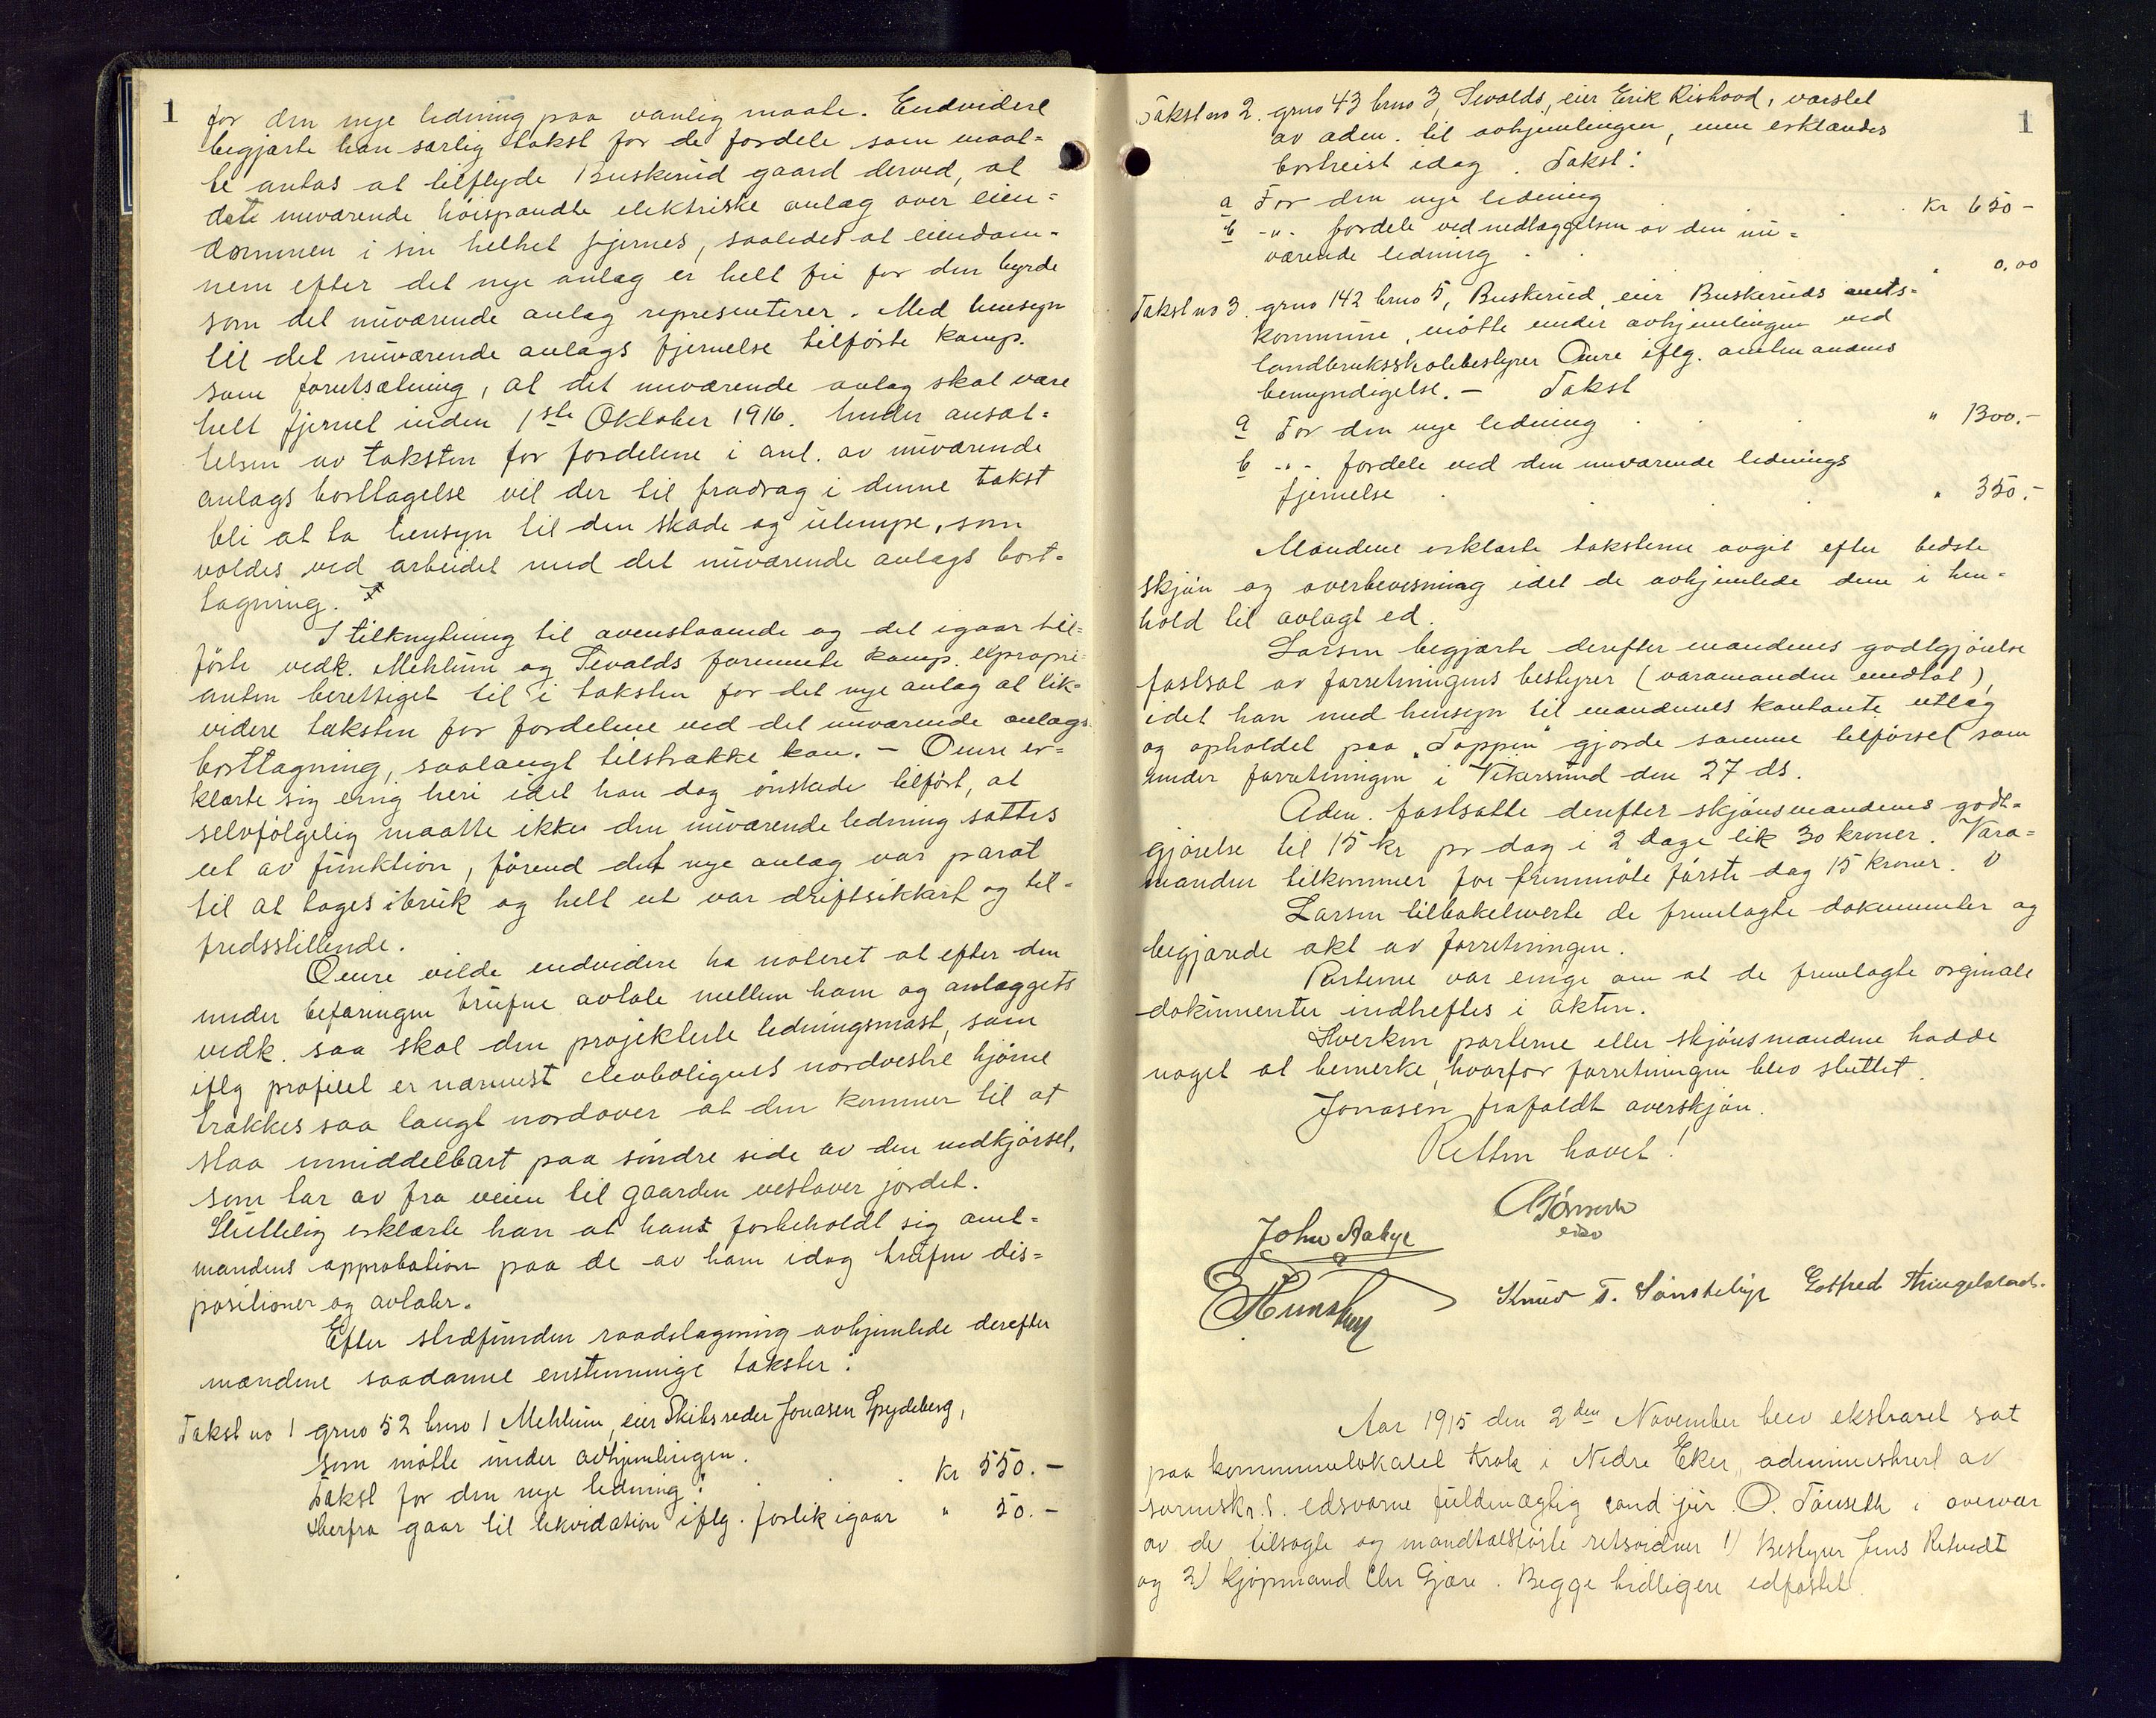 1
for den nye ledning paa vanlig maate. Endvidere
begjærte han særlig takst for de fordele som maat-
te antas at tilflyde Buskerud gaard derved, at
det nuværende høispændte elektriske anlæg over eien-
dommen i sin helhet fjernes, saaledes at eiendom-
men efter det nye anlæg er helt fri for den byrde
som det nuværende anlæg representerer. Med hensyn
til det nuværende anlægs fjernelse tilførte komp.
som forutsætning, at det nuværende anlæg skal være
helt fjernet inden 1ste Oktober 1916. Under ansæt-
telsen av taksten for fordelene i anl. av nuværende
anlægs borttagelse vil der til fradrag i denne takst
bli at ta hensyn til den skade og ulempe, som
voldes ved arbeidet med det nuværende anlægs bort-
tagning.
I tilknytning til ovenstaaende og det igaar til-
førte vedk. Mehlum og Sevalds formente komp. expropri-
anten berettiget til i taksten for det nye anlæg at lik-
videre taksten for fordelene ved det nuværende anlægs
borttagning, saalangt tilstrække kan. — Omre er-
klærte sig enig heri idet han dog ønskede tilført, at
selvfølgelig maatte ikke den nuværende ledning sættes
ut av funktion, førend det nye anlæg var parat
til at tages ibruk og helt ut var driftsikkert og til-
fredsstillende.
Omre vilde endvidere ha noteret at efter den
under befaringen trufne avtale mellem ham og anlæggets
vedk. saa skal den projekterte ledningsmast, som
iflg profilet er nærmest elevboligens nordvestre hjørne
trækkes saa langt nordover at den kommer til at
staa umiddelbart paa søndre side av den nedkjørsel,
som tar av fra veien til gaarden vestover jordet.
Sluttelig erklærte han at hans forbeholdt sig amt-
mandens approbation paa de av ham idag trufne dis-
positioner og avtaler.
Efter stedfunden raadslagning avhjemlede derefter
mændene saadanne enstemmige takster:
Takst no 1 grno 52 brno 1 Mehlum, eier Skibsreder Jonasen Spydeberg,
som møtte under avhjemlingen.
Takst for den nye ledning: kr 550.—
Herfra gaar til likvidation iflg. forlik igaar " 50.—
1
Takst no 2. grno 43 brno 3, Sevalds, eier Erik Rishovd, varslet
av adm. til avhjemlingen, men erklændes
bortreist idag. Takst:
a For den nye ledning kr 650-
b -"- fordele ved nedlæggelsen av den nu-
værende ledning " 0,00
Takst no 3. grno 142 brno 5, Buskerud, eier Buskeruds amts-
kommune, møtte under avhjemlingen ved
landbruksskolebestyrer Omre iflg. amtmandens
bemyndigelse. — Takst
a For den nye ledning " 1300.-
b -"- fordele ved den nuværende lednings
fjernelse " 350.-
Mændene erklærte taksterne avgit efter bedste
skjøn og overbevisning idet de avhjemlede dem i hen-
hold til avlagt ed.
Larsen begjærte derefter mændenes godtgjørelse
fastsat av forretningens bestyrer (varamanden undtat),
idet han med hensyn til mændenes kontante utlæg
og opholdet paa "Toppen" gjorde samme tilførsel som
under forretningen i Vikersund den 27 ds.
Adm. fastsatte derefter skjønsmændenes godt-
gjørelse til 15 kr pr dag i 2 dage lik 30 kroner. Vara-
manden tilkommer for fremmøte første dag 15 kroner.
Larsen tilbakeleverte de fremlagte dokumenter og
begjærede akt av forretningen.
Parterne var enige om at de fremlagte orginale
dokumenter indheftes i akten.
Hverken parterne eller skjønsmændene hadde
noget at bemerke, hvorfor forretningen blev sluttet.
Jonasen frafaldt overskjøn.
Retten hævet!
John Aabye
Knud T. Sønsteby Gotfred Thingelstad.
Aar 1915 den 2den November blev ekstraret sat
paa kommunelokalet Krok i Nedre Eker, administrert av
sorenskr.s. edsvorne fuldmægtig cand jur. O. Tønseth i overvær
av de tilsagte og mandtalsførte retsvidner 1) Bestyrer Jens Retvedt
og 2) kjøpmand Chr Gjære. Begge tidligere edfæstet.